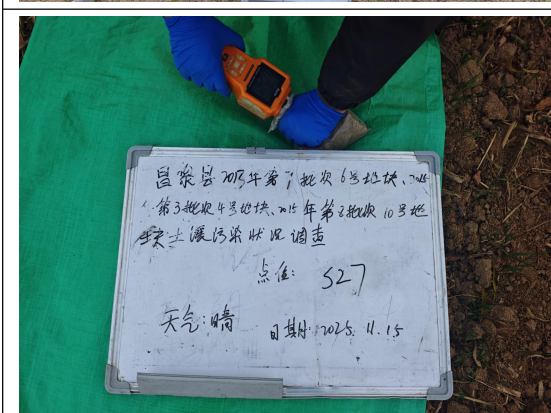 昌黎县2015年第7批次6号地块、2015
年第3批次4号地块、2015年第8批次10号地
块土壤污染状况调查
点位: S27
天气:晴 日期: 2025.11.15